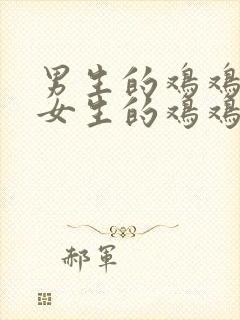 男生的鸡鸡
女生的鸡鸡
郝军